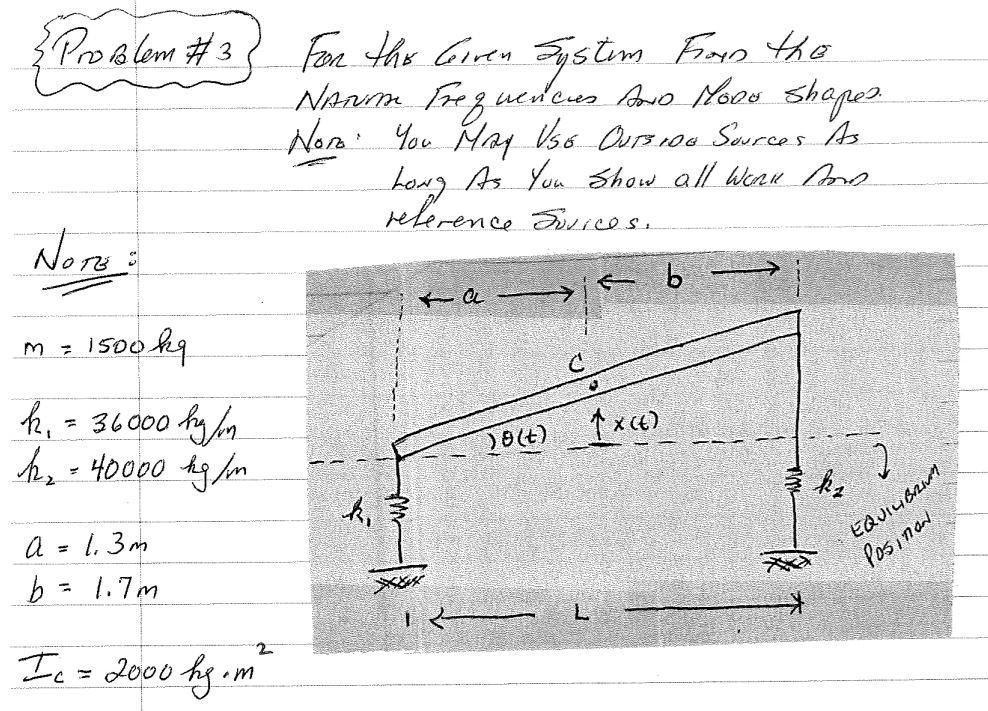 Problem #3
For the Given System Find the
Natural Frequencies And Mode Shapes.
Note: You May Use Outside Sources As
Long As You Show all Work And
reference Sources.
Note:
m = 1500 kg
k₁ = 36000 kg/m
k₂ = 40000 kg/m
a = 1.3m
b = 1.7m
I_c = 2000 kg·m²
a
b
C
θ(t)
x(t)
k₁
k₂
EQUILIBRIUM
POSITION
L